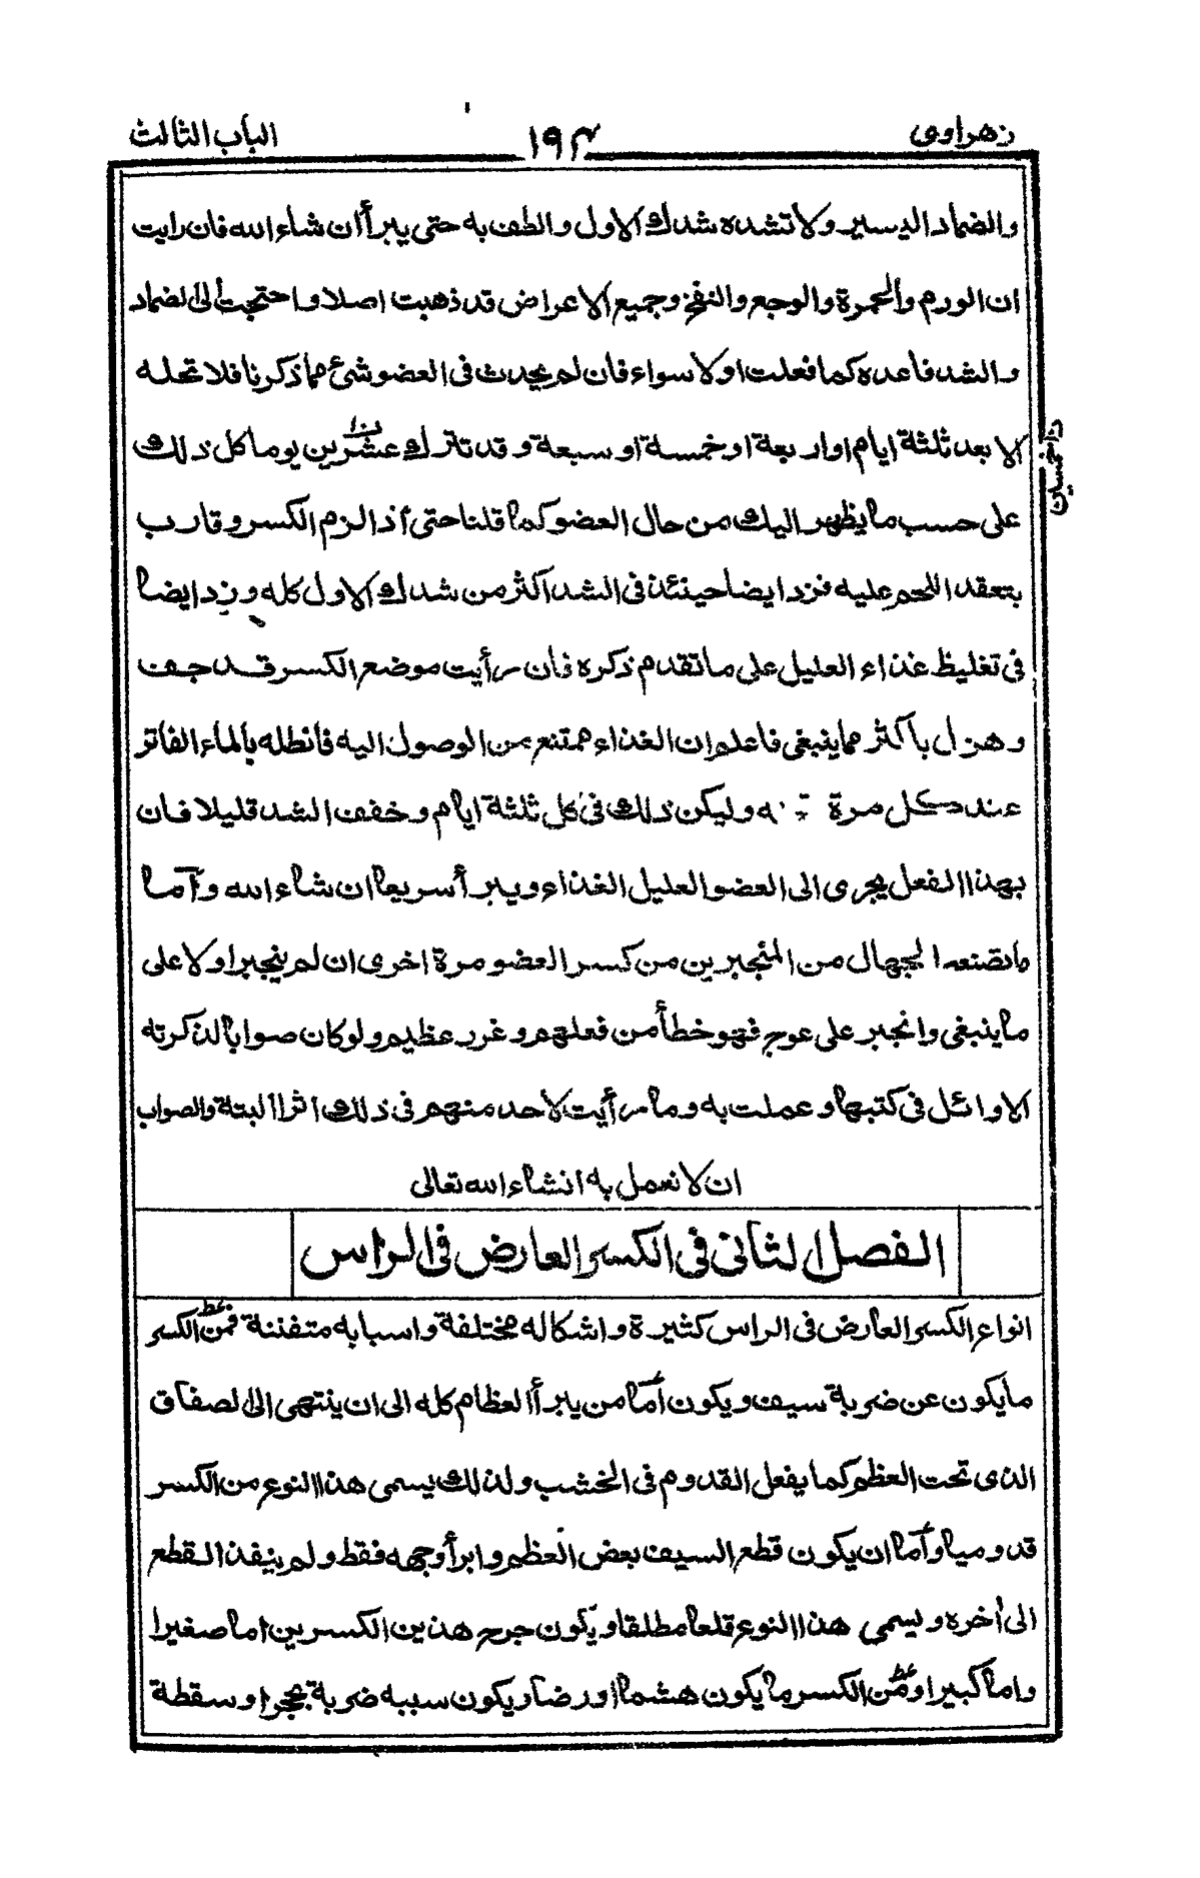 زهراوى ١٩٤ الباب الثالث
والضماد اليسير ولا تشده شدك الاول والطف به حتى يبرأ ان شاء الله فان رايت
ان الورم والحمرة والوجع والنفخ وجميع الاعراض قد ذهبت اصلا واحتجت الى الضماد
والشد فاعده كما فعلت اولا سواء فان لم يحدث فى العضو شئ مما ذكرنا فلا تحله
الا بعد ثلثة ايام او اربعة او خمسة او سبعة وقد تترك عشرين يوما كل ذلك
على حسب ما يظهر اليك من حال العضو كما قلنا حتى اذا لزم الكسر وقارب
بتعقد اللحم عليه فزد ايضا حينئذ فى الشد اكثر من شدك الاول كله وزد ايضا
فى تغليظ غذاء العليل على ما تقدم ذكره فان رأيت موضع الكسر قد جف
وهزل باكثر مما ينبغى فاعلم ان الغذاء ممتنع من الوصول اليه فانطله بالماء الفاتر
عند كل مرة وليكن ذلك فى كل ثلثة ايام وخفف الشد قليلا فان
بهذا الفعل يجرى الى العضو العليل الغذاء ويبرأ سريعا ان شاء الله واما
ما تصنعه الجهال من المنجبرين من كسر العضو مرة اخرى ان لم ينجبر اولا على
ما ينبغى وانجبر على عوج فهو خطأ من فعلهم وغرر عظيم ولو كان صوابا لذكرته
الاوائل فى كتبها وعملت به وما رأيت لاحد منهم فى ذلك اثرا البتة والصواب
ان لا نعمل به انشاء الله تعالى
الفصل الثانى فى الكسر العارض فى الراس
انواع الكسر العارض فى الراس كثيرة واشكاله مختلفة واسبابه متفننة فمن الكسر
ما يكون عن ضربة سيف ويكون اما من يبرأ العظام كله الى ان ينتهى الى الصفاق
الذى تحت العظم كما يفعل القدوم فى الخشب ولذلك يسمى هذا النوع من الكسر
قدوميا واما ان يكون قطع السيف بعض العظم وابرأ وجهه فقط ولم ينفذ القطع
الى أخره ويسمى هذا النوع قلعا مطلقا ويكون جرح هذين الكسرين اما صغيرا
واما كبيرا ومن الكسر ما يكون هشما او رضا ويكون سببه ضربة بحجر او سقطة